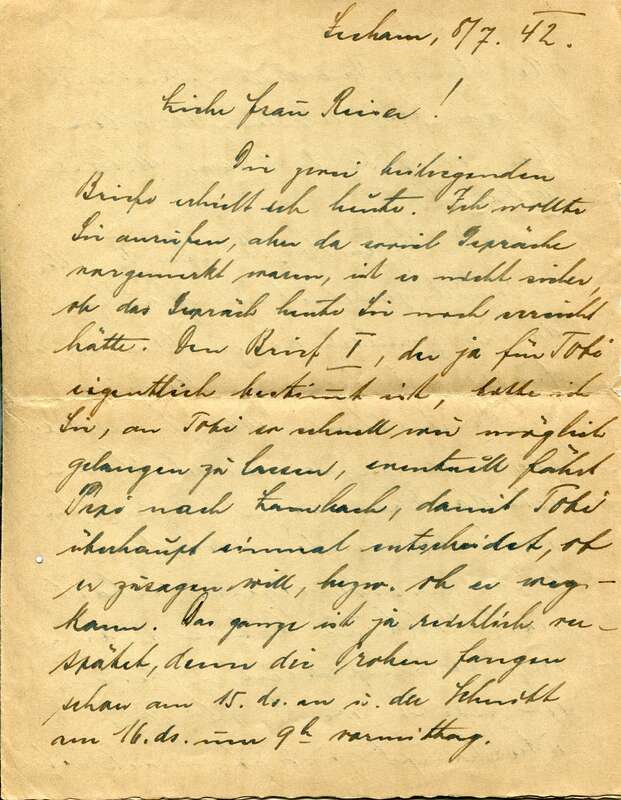 Seeham, 8/7. 42.
Liebe Frau Reiser!
Die zwei beiliegenden
Briefe erhielt ich heute. Ich wollte
Sie anrufen, aber da soviel Gespräche
vorgemerkt waren, ist es nicht sicher,
ob das Gespräch heute Sie noch erreicht
hätte. Den Brief I, der ja für Tobi
eigentlich bestimt ist, bitte ich
Sie, an Tobi so schnell wie möglich
gelangen zu lassen, eventuell fährt
nach Lambach, damit Tobi
überhaupt einmal entscheidet, ob
er zusagen will, bezw. ob er weg-
kann. Das ganze ist ja reichlich ver-
spätet, denn die Proben fangen
schon am 15. ds. an u. der Schnitt
am 16. ds. um 9h vormittag.